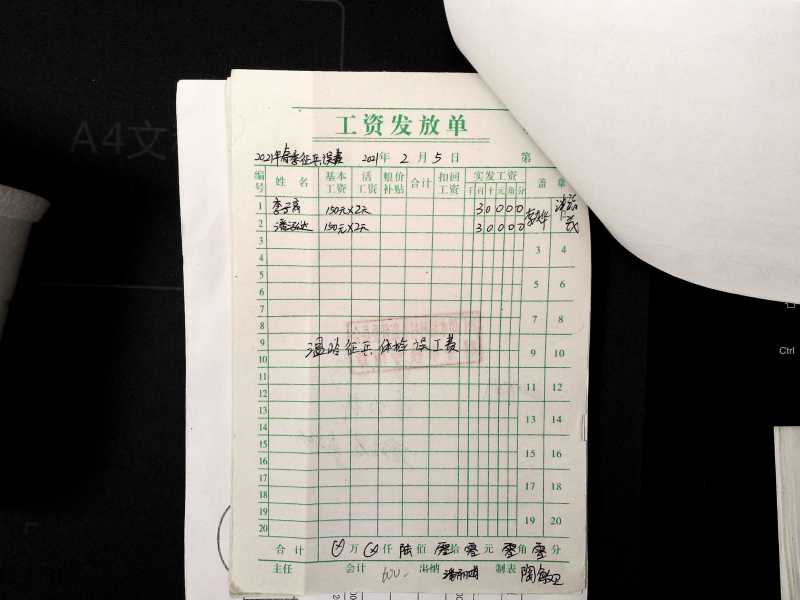 A4文
工资发放单
2021年春季征兵误餐 2021年2月5日 第
编号 姓名 基本工资 活工资 粮价补贴 合计 扣回工资 实发工资 盖章
千百十元角分
1 150元×2天 30000
2 潘 150元×2天 30000
3 3 4
4
5 5 6
6
7 7 8
8
9 9 10
温岭征兵体检误工费
10
11 11 12
12
13 13 14
14
15 15 16
16
17 17 18
18
19 19 20
20
合计 万 仟 陆佰 零拾 零元 零角 零分
主任 会计 600- 出纳 制表 陶
Ctrl